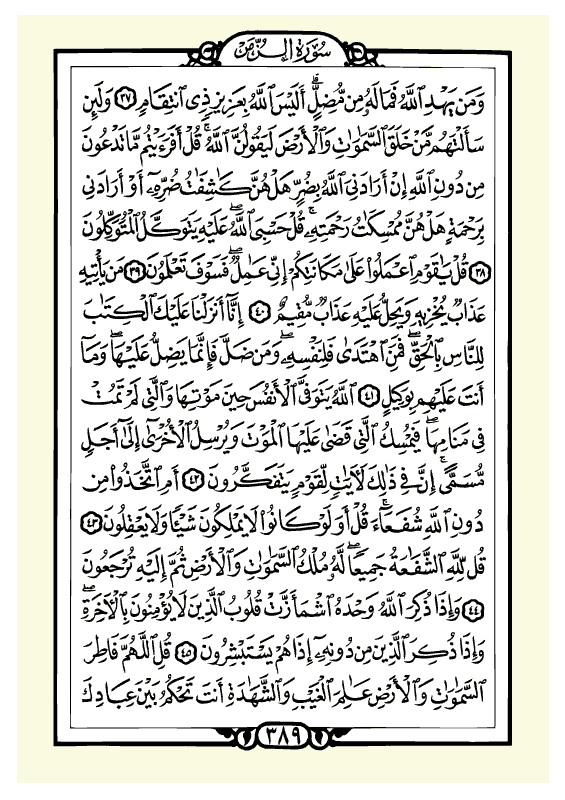 سُورَةُ الزُّمَر
وَمَن يَهْدِ ٱللَّهُ فَمَا لَهُۥ مِن مُّضِلٍّ ۗ أَلَيْسَ ٱللَّهُ بِعَزِيزٍ ذِى ٱنتِقَامٍ ٣٧ وَلَئِن
سَأَلْتَهُم مَّنْ خَلَقَ ٱلسَّمَٰوَٰتِ وَٱلْأَرْضَ لَيَقُولُنَّ ٱللَّهُ ۚ قُلْ أَفَرَءَيْتُم مَّا تَدْعُونَ
مِن دُونِ ٱللَّهِ إِنْ أَرَادَنِىَ ٱللَّهُ بِضُرٍّ هَلْ هُنَّ كَٰشِفَٰتُ ضُرِّهِۦٓ أَوْ أَرَادَنِى
بِرَحْمَةٍ هَلْ هُنَّ مُمْسِكَٰتُ رَحْمَتِهِۦ ۚ قُلْ حَسْبِىَ ٱللَّهُ ۖ عَلَيْهِ يَتَوَكَّلُ ٱلْمُتَوَكِّلُونَ
٣٨ قُلْ يَٰقَوْمِ ٱعْمَلُوا۟ عَلَىٰ مَكَانَتِكُمْ إِنِّى عَٰمِلٌ ۖ فَسَوْفَ تَعْلَمُونَ ٣٩ مَن يَأْتِيهِ
عَذَابٌ يُخْزِيهِ وَيَحِلُّ عَلَيْهِ عَذَابٌ مُّقِيمٌ ٤٠ إِنَّآ أَنزَلْنَا عَلَيْكَ ٱلْكِتَٰبَ
لِلنَّاسِ بِٱلْحَقِّ ۖ فَمَنِ ٱهْتَدَىٰ فَلِنَفْسِهِۦ ۖ وَمَن ضَلَّ فَإِنَّمَا يَضِلُّ عَلَيْهَا ۖ وَمَآ
أَنتَ عَلَيْهِم بِوَكِيلٍ ٤١ ٱللَّهُ يَتَوَفَّى ٱلْأَنفُسَ حِينَ مَوْتِهَا وَٱلَّتِى لَمْ تَمُتْ
فِى مَنَامِهَا ۖ فَيُمْسِكُ ٱلَّتِى قَضَىٰ عَلَيْهَا ٱلْمَوْتَ وَيُرْسِلُ ٱلْأُخْرَىٰٓ إِلَىٰٓ أَجَلٍ
مُّسَمًّى ۚ إِنَّ فِى ذَٰلِكَ لَءَايَٰتٍ لِّقَوْمٍ يَتَفَكَّرُونَ ٤٢ أَمِ ٱتَّخَذُوا۟ مِن
دُونِ ٱللَّهِ شُفَعَآءَ ۚ قُلْ أَوَلَوْ كَانُوا۟ لَا يَمْلِكُونَ شَيْـًٔا وَلَا يَعْقِلُونَ ٤٣
قُل لِّلَّهِ ٱلشَّفَٰعَةُ جَمِيعًا ۖ لَّهُۥ مُلْكُ ٱلسَّمَٰوَٰتِ وَٱلْأَرْضِ ۖ ثُمَّ إِلَيْهِ تُرْجَعُونَ
٤٤ وَإِذَا ذُكِرَ ٱللَّهُ وَحْدَهُ ٱشْمَأَزَّتْ قُلُوبُ ٱلَّذِينَ لَا يُؤْمِنُونَ بِٱلْءَاخِرَةِ ۖ
وَإِذَا ذُكِرَ ٱلَّذِينَ مِن دُونِهِۦٓ إِذَا هُمْ يَسْتَبْشِرُونَ ٤٥ قُلِ ٱللَّهُمَّ فَاطِرَ
ٱلسَّمَٰوَٰتِ وَٱلْأَرْضِ عَٰلِمَ ٱلْغَيْبِ وَٱلشَّهَٰدَةِ أَنتَ تَحْكُمُ بَيْنَ عِبَادِكَ
٣٨٩